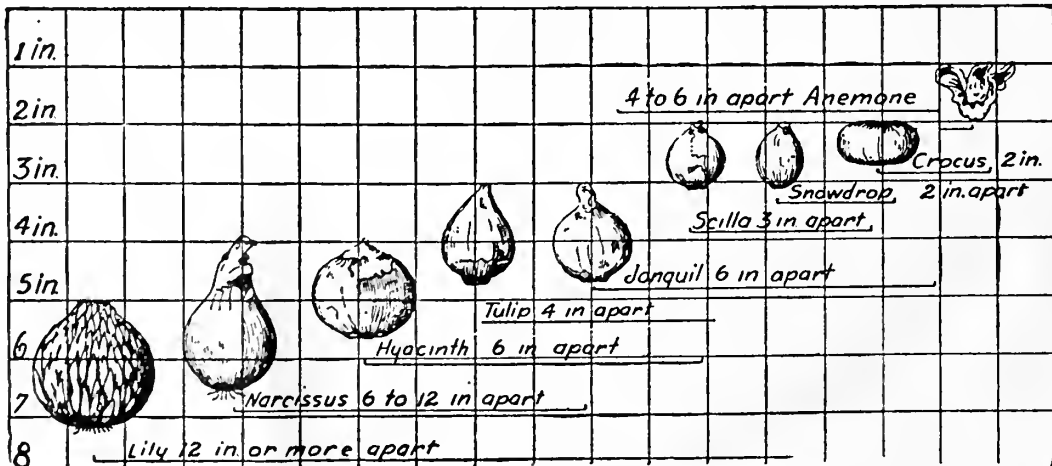 1 in.
2 in.
4 to 6 in apart Anemone
3 in.
Crocus, 2 in.
Snowdrop 2 in. apart
4 in.
Scilla 3 in apart
5 in
Jonquil 6 in apart
Tulip 4 in apart
6
Hyacinth 6 in apart
7
Narcissus 6 to 12 in apart
8
Lily 12 in or more apart